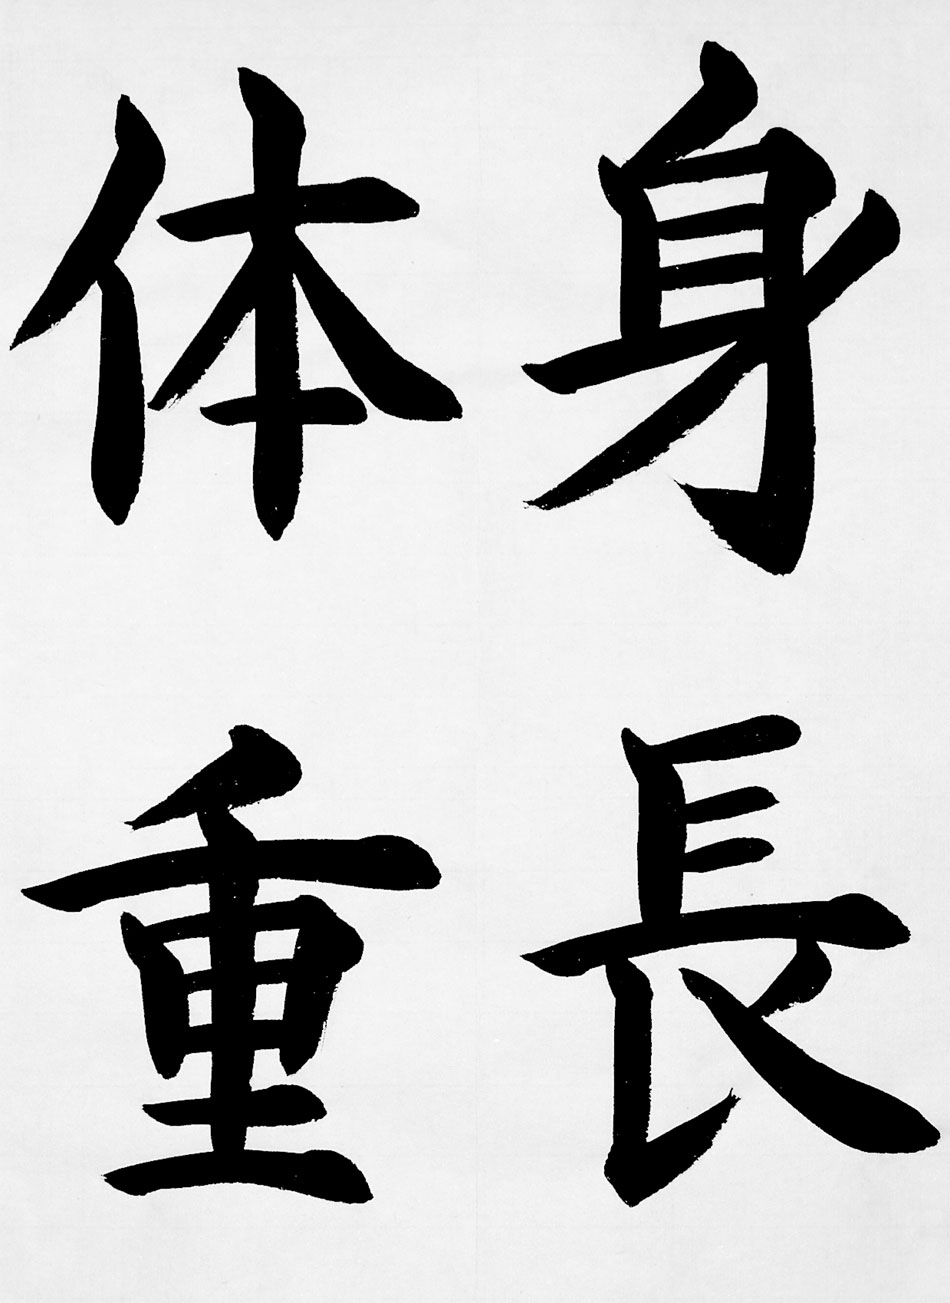 身長
体重